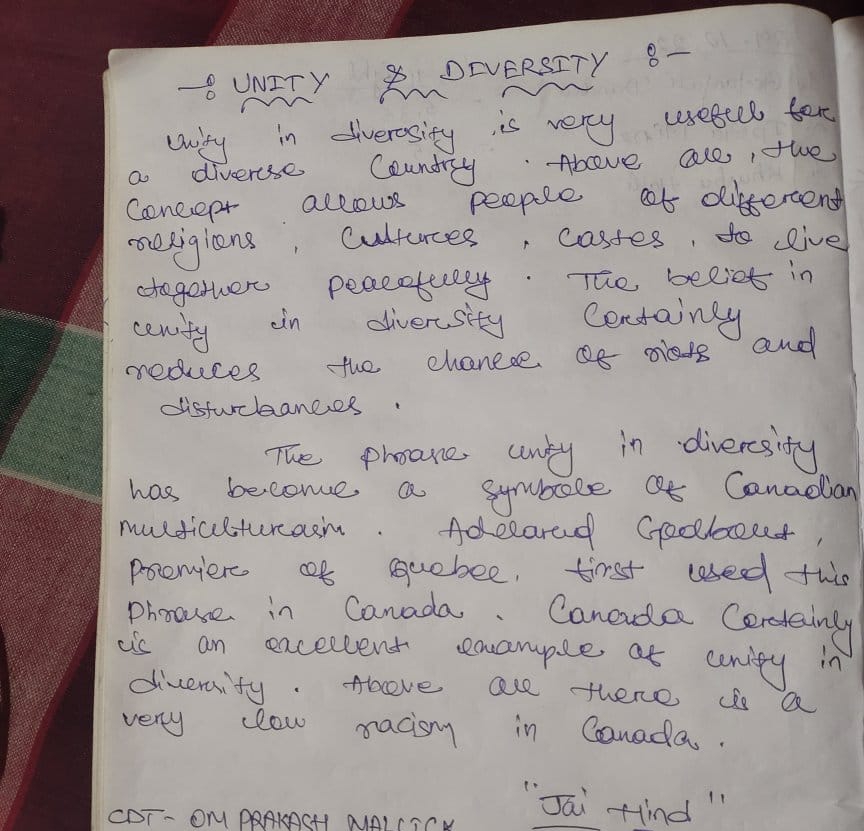 -: UNITY & DIVERSITY :-
Unity in diversity is very useful for
a diverse Country . Above all , the
Concept allows people of different
religions , Cultures , castes , to live
together peacefully . The belief in
unity in diversity Certainly
reduces the chance of riots and
disturbances .
The phrase unity in diversity
has become a symbole of Canadian
multiculturasm . Adelarad Godbout ,
Premiere of Quebec , first used this
Phrase in Canada . Canada Certainly
is an excellent example of unity in
diversity . Above all there is a
very low racism in Canada .
"Jai Hind"
CDT- OM PRAKASH MALLICK